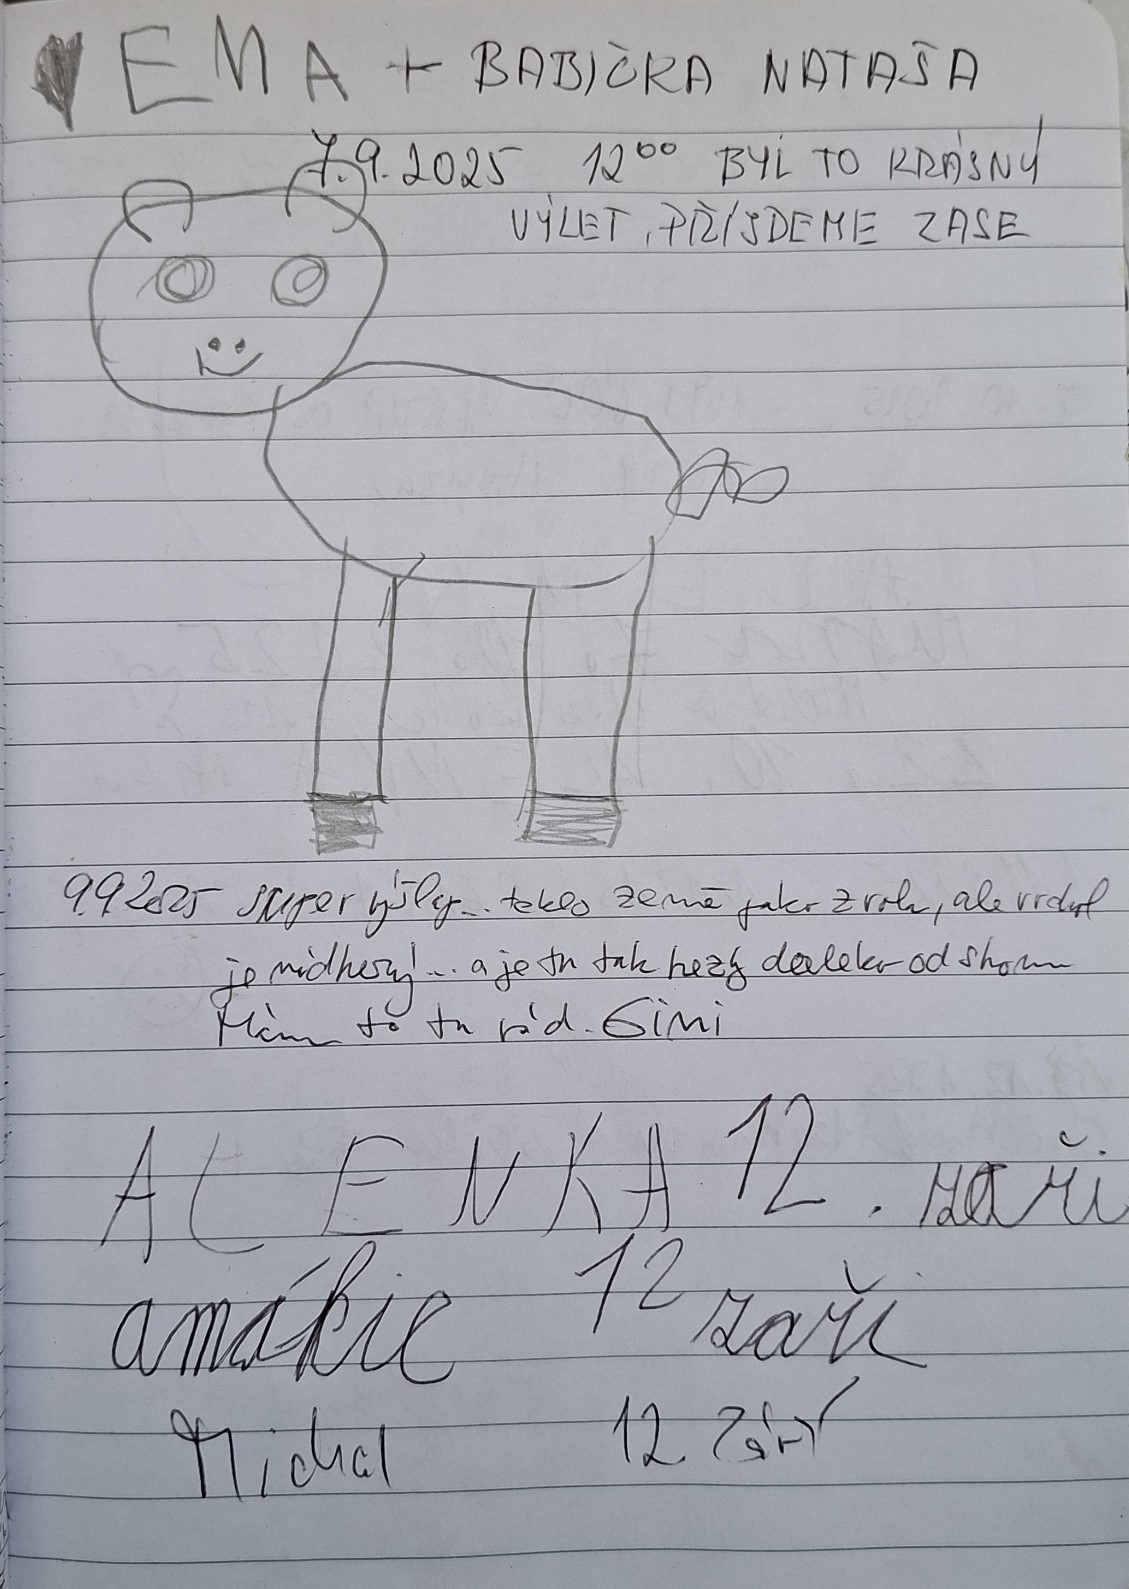 EMA + BABIČKA NATAŠA
7.9.2025 12⁰⁰ BYL TO KRÁSNÝ
VÝLET, PŘÍJDEME ZASE
9.9.2025 super výšlap... teklo ze mě jako z vola, ale vrchol
je nádherný!... a je tu tak hezky daleko od
Mám to tu rád. Gimi
ALENKA 12. zaři
amálie 12 zaři
Michal 12 Září